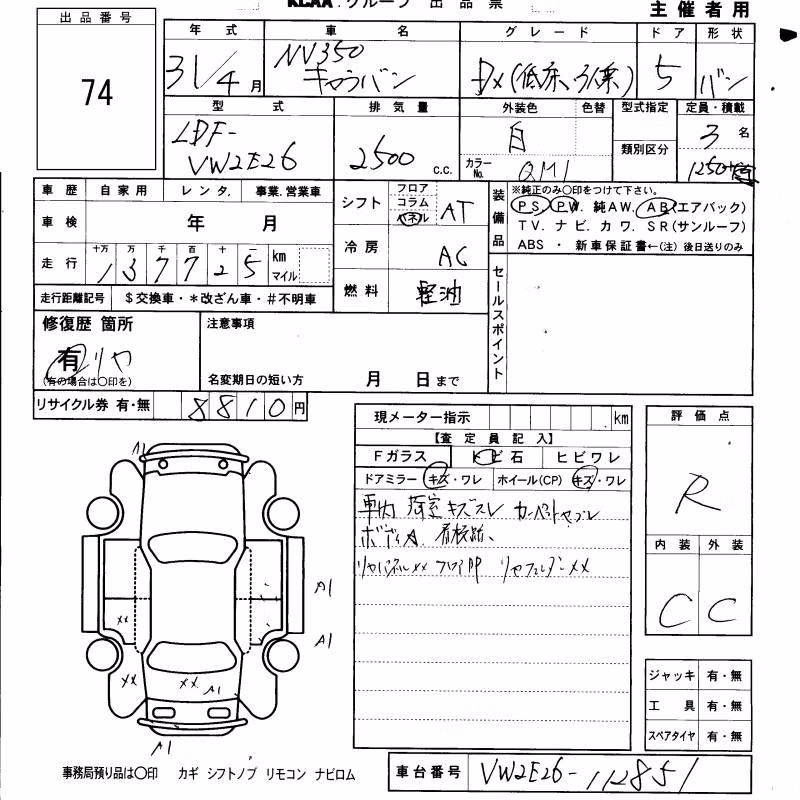 KCAA グループ 出品票
主催者用
出品番号
74
年式 車名 グレード ドア 形状
31/4月 NV350 キャラバン DX(低床、) 5 バン
型式 排気量 外装色 色替 型式指定 定員・積載
LDF-VW2E26 2500 c.c. 白 類別区分 3名
カラーNo. QM1 1250
車歴 自家用 レンタ. 事業.営業車
車検 年 月
走行 十万 万 千 百 十 一 km マイル
1 3 7 7 2 5
走行距離記号 $交換車・*改ざん車・#不明車
シフト フロア コラム パネル AT
冷房 AC
燃料 軽油
装備品
※純正のみ〇印をつけて下さい。
PS. PW. 純AW. AB(エアバック)
TV. ナビ. カワ. SR(サンルーフ)
ABS ・ 新車保証書←(注)後日送りのみ
セールスポイント
修復歴 箇所
有 リヤ
(有の場合は〇印を)
注意事項
名変期日の短い方 月 日まで
リサイクル券 有・無 8810円
現メーター指示 km
【査定員記入】
Fガラス トビ石 ヒビワレ
ドアミラー キズ・ワレ ホイール(CP) キズ・ワレ
車内 荷室キズスレ カーペットヤブレ
ボディA 看板跡、
リヤパネルxx フロアP リヤフェンダーxx
評価点
R
内装 外装
C C
A1
A1
A1
xx
xx xx A1
A1
ジャッキ 有・無
工具 有・無
スペアタイヤ 有・無
事務局預り品は〇印 カギ シフトノブ リモコン ナビロム
車台番号 VW2E26-112851